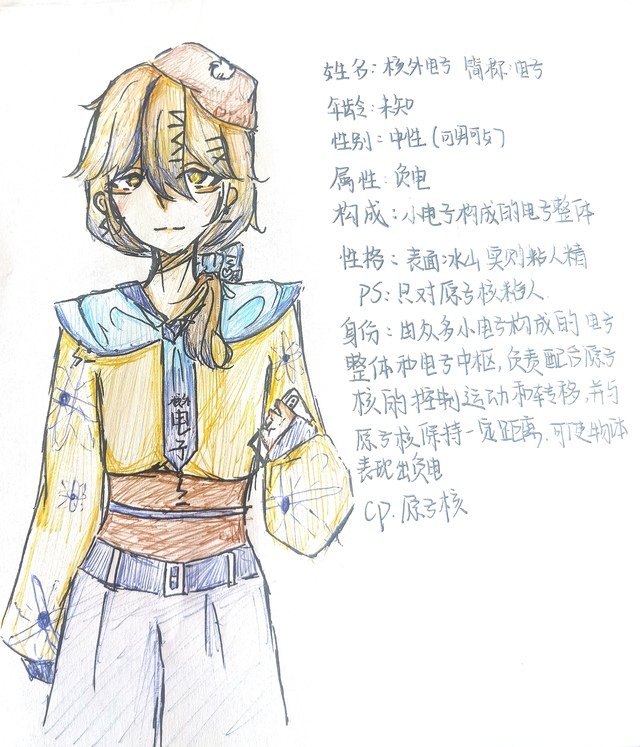 姓名：核外电子 简称：电子
年龄：未知
性别：中性（可男可女）
属性：负电
构成：小电子构成的电子整体
性格：表面冰山 实则粘人精
PS：只对原子核粘人.
身份：由众多小电子构成的电子
整体和电子中枢，负责配合原子
核的控制运动和转移，并与
原子核保持一定距离.可使物体
表现出负电
CP.原子核
核外
电子